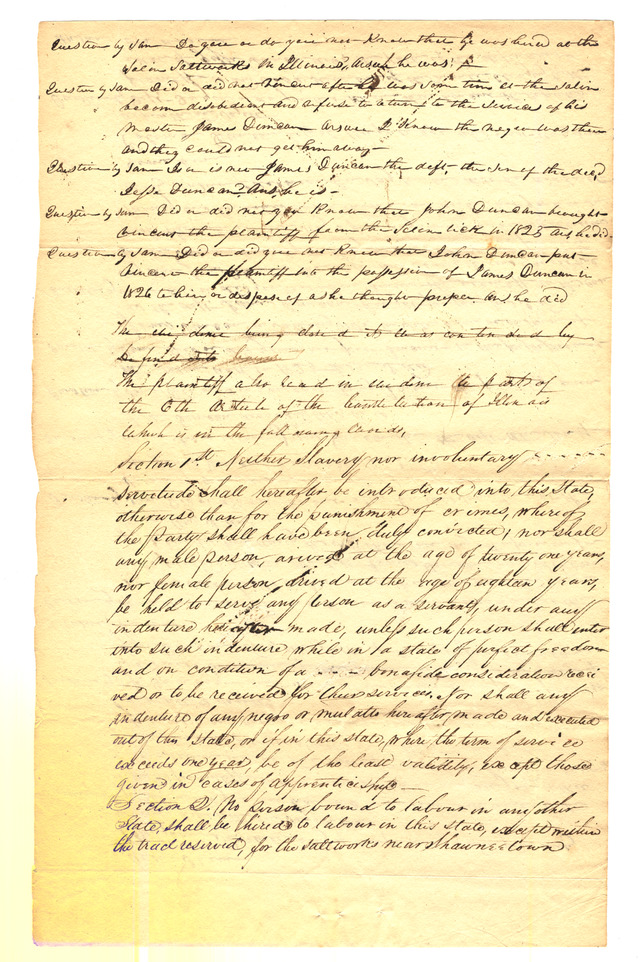 Question by Sam Do you or do you not Know that he was hired at the
Salin Saltworks in Illinois, Answer he was
Question by Sam Did or did not Vincent after he was some time at the salin
becom disobedient and refuse to return to the Services of his
Master James Duncan Answer I Know the negro was there
and they could not get him away —
Question by Sam Is or is not James Duncan the deft, the son of the decd
Jesse Duncan? Ans, he is —
Question by Sam Did or did not you Know that John Duncan brought
Vincent the plaintiff from the Salin lick in 1825 Ans he did
Question by Sam Did or did you not Know that John Duncan put
Vincent the plaintiff into the possession of James Duncan in
1826 to hire or dispose of as he thought proper Ans he did
The evidence being closed it was contended by
Defend
The plaintiff also read in evidence the parts of
the 6th Article of the Constitution of Illinois
which is in the following words,
Section 1st Neither Slavery nor involuntary - - - - -
servitude shall hereafter be introduced into this State,
otherwise than for the punishment of crimes, whereof
the Party shall have been duly convicted; nor shall
any male person, arived at the age of twenty one years,
nor female person, arived at the age of eightan years,
be held to serve any person as a servant, under any
indenture hereafter made, unless such person shall enter
into such indenture while in a state of perfect freedom
and on condition of a - - - - bonafide consideration recei
ved or to be received for their services. Nor shall any
indenture of any negro or mulatto hereafter, made and executed
out of this state, or if in this state, where the term of service
exceeds one year, be of the least validity, except those
given in cases of apprenticeship —
Section 2. No person bound to labour in any other
State, shall be hired to labour in this state, except within
the tract reserved, for the saltworks near Shawneetown